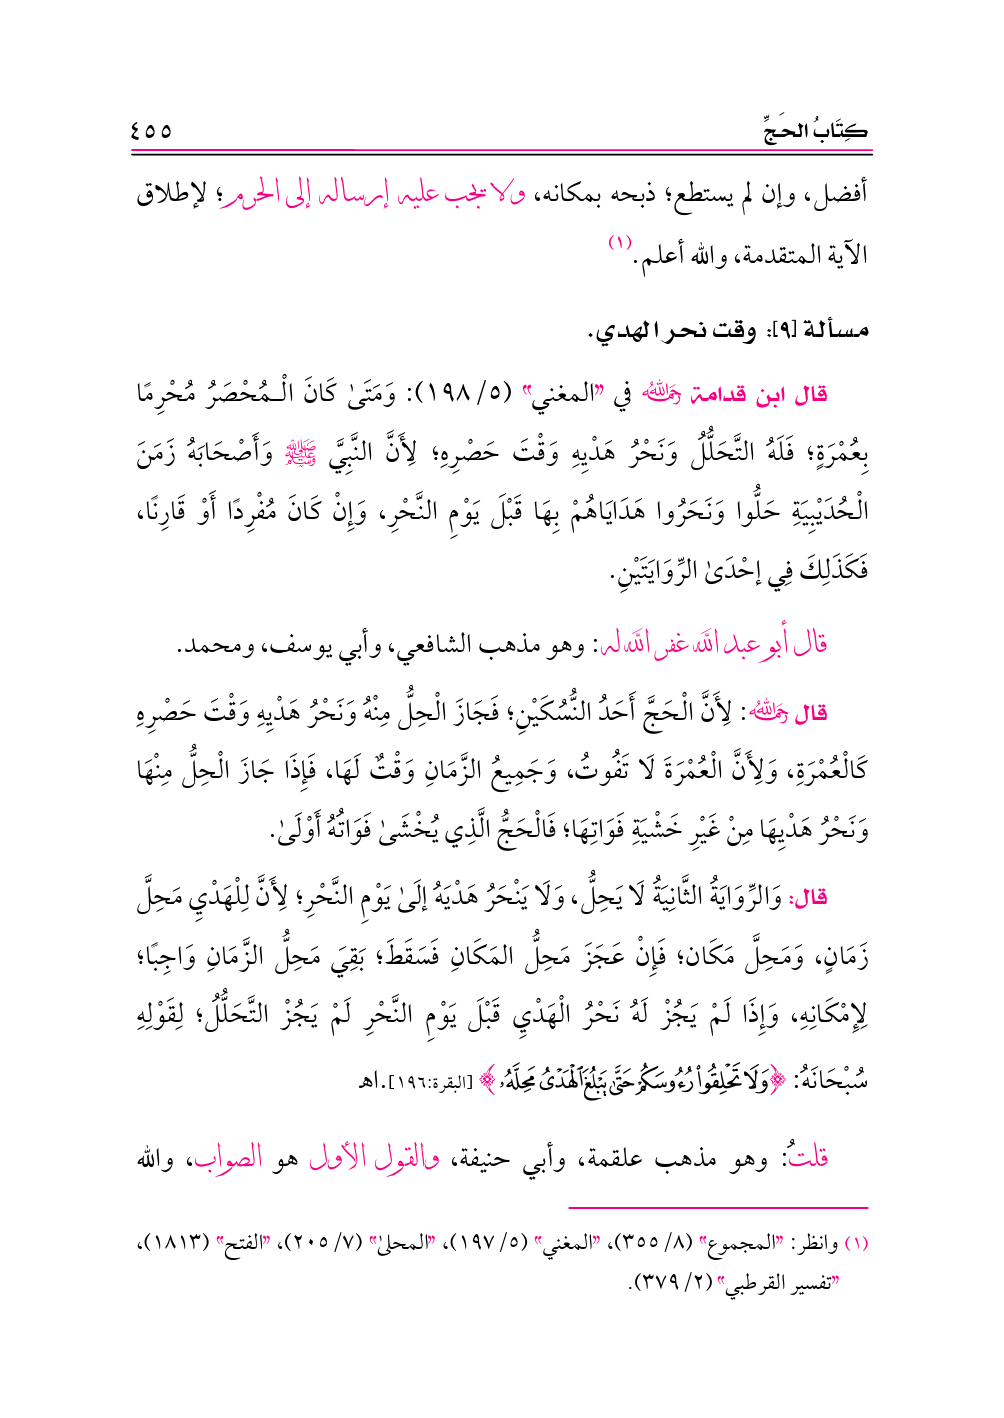 كِتَابُ الحَجِّ ٤٥٥
أفضل، وإن لم يستطع؛ ذبحه بمكانه، ولا يجب عليه إرساله إلى الحرم؛ لإطلاق
الآية المتقدمة، والله أعلم.(١)
مسألة [٩]: وقت نحر الهدي.
قال ابن قدامة رحمه الله في "المغني" (٥/ ١٩٨): وَمَتَىٰ كَانَ الْـمُحْصَرُ مُحْرِمًا
بِعُمْرَةٍ؛ فَلَهُ التَّحَلُّلُ وَنَحْرُ هَدْيِهِ وَقْتَ حَصْرِهِ؛ لِأَنَّ النَّبِيَّ ﷺ وَأَصْحَابَهُ زَمَنَ
الْحُدَيْبِيَةِ حَلُّوا وَنَحَرُوا هَدَايَاهُمْ بِهَا قَبْلَ يَوْمِ النَّحْرِ، وَإِنْ كَانَ مُفْرِدًا أَوْ قَارِنًا،
فَكَذَلِكَ فِي إحْدَىٰ الرِّوَايَتَيْنِ.
قال أبو عبد الله غفر الله له: وهو مذهب الشافعي، وأبي يوسف، ومحمد.
قال رحمه الله: لِأَنَّ الْحَجَّ أَحَدُ النُّسُكَيْنِ؛ فَجَازَ الْحِلُّ مِنْهُ وَنَحْرُ هَدْيِهِ وَقْتَ حَصْرِهِ
كَالْعُمْرَةِ، وَلِأَنَّ الْعُمْرَةَ لَا تَفُوتُ، وَجَمِيعُ الزَّمَانِ وَقْتٌ لَهَا، فَإِذَا جَازَ الْحِلُّ مِنْهَا
وَنَحْرُ هَدْيِهَا مِنْ غَيْرِ خَشْيَةِ فَوَاتِهَا؛ فَالْحَجُّ الَّذِي يُخْشَىٰ فَوَاتُهُ أَوْلَىٰ.
قال: وَالرِّوَايَةُ الثَّانِيَةُ لَا يَحِلُّ، وَلَا يَنْحَرُ هَدْيَهُ إلَىٰ يَوْمِ النَّحْرِ؛ لِأَنَّ لِلْهَدْيِ مَحِلَّ
زَمَانٍ، وَمَحِلَّ مَكَان؛ فَإِنْ عَجَزَ مَحِلُّ المَكَانِ فَسَقَطَ؛ بَقِيَ مَحِلُّ الزَّمَانِ وَاجِبًا؛
لِإِمْكَانِهِ، وَإِذَا لَمْ يَجُزْ لَهُ نَحْرُ الْهَدْيِ قَبْلَ يَوْمِ النَّحْرِ لَمْ يَجُزْ التَّحَلُّلُ؛ لِقَوْلِهِ
سُبْحَانَهُ: ﴿وَلَا تَحْلِقُواْ رُءُوسَكُمْ حَتَّىٰ يَبْلُغَ ٱلْهَدْىُ مَحِلَّهُۥ﴾ [البقرة:١٩٦].اهـ
قلتُ: وهو مذهب علقمة، وأبي حنيفة، والقول الأول هو الصواب، والله
(١) وانظر: "المجموع" (٨/ ٣٥٥)، "المغني" (٥/ ١٩٧)، "المحلىٰ" (٧/ ٢٠٥)، "الفتح" (١٨١٣)،
"تفسير القرطبي" (٢/ ٣٧٩).